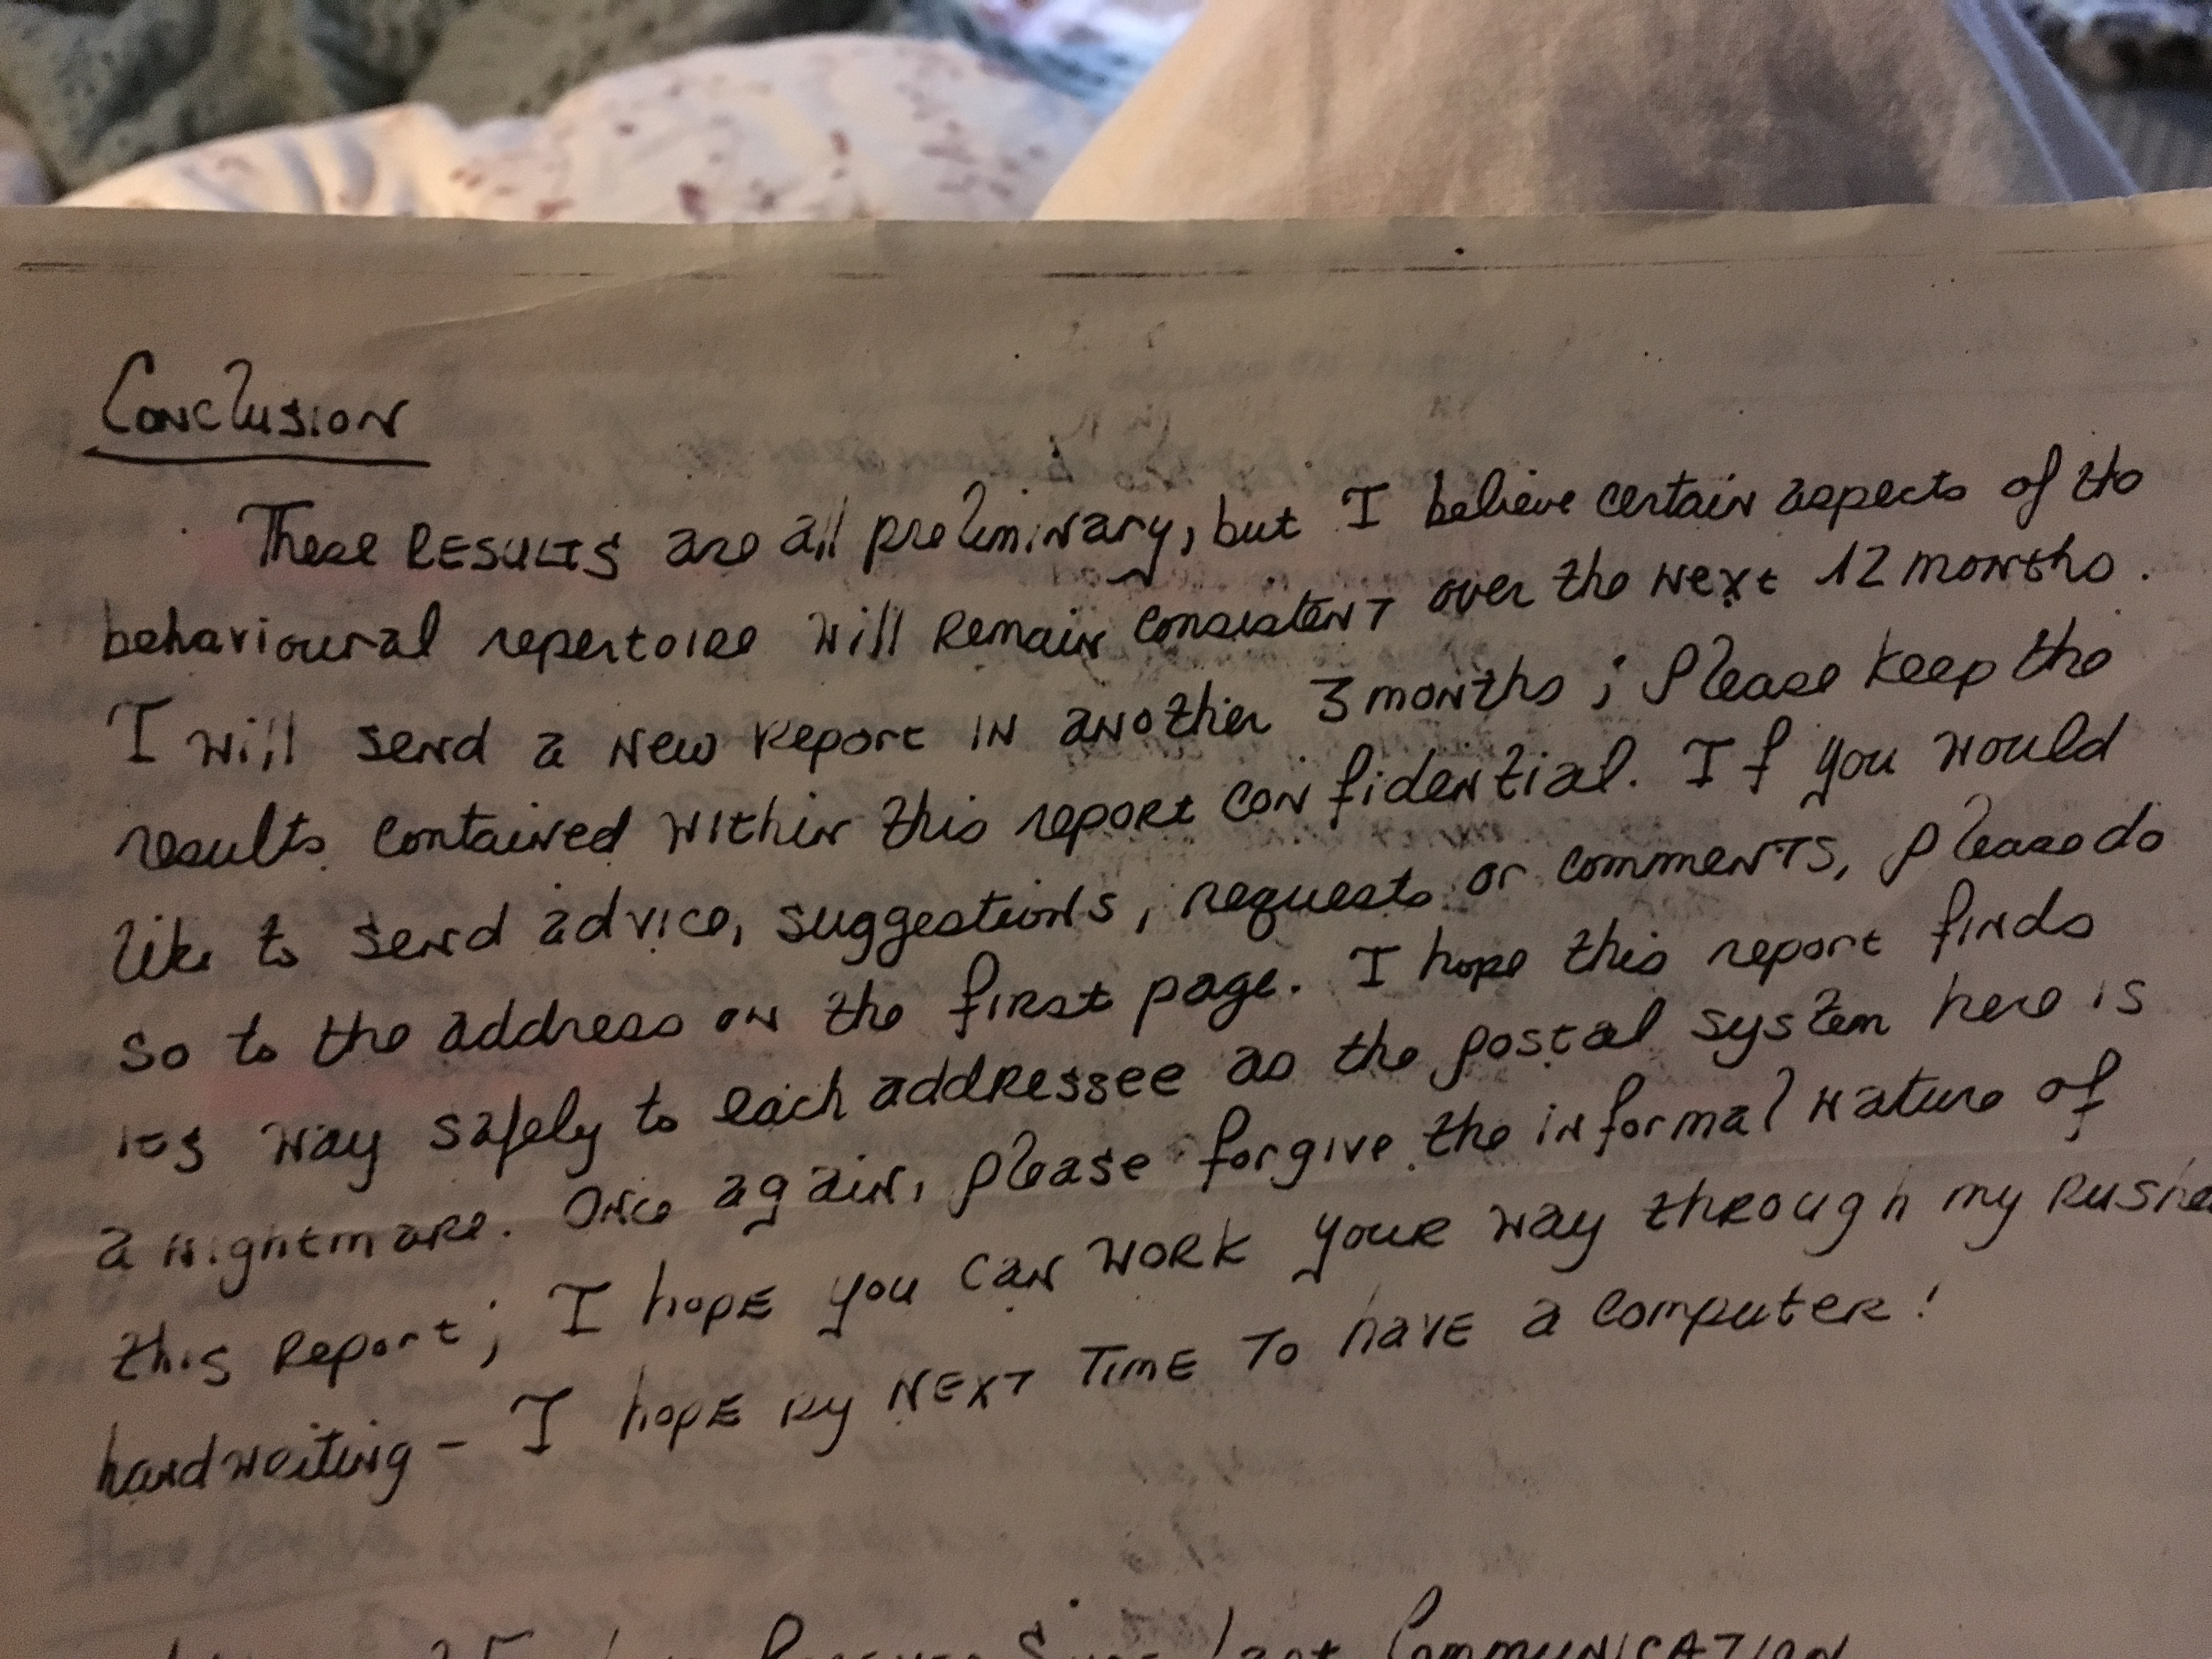 Conclusion
These RESULTS are all preliminary, but I believe certain aspects of the
behavioural repertoire will Remain consistent over the next 12 months.
I will send a new report in another 3 months; please keep the
results contained within this report confidential. If you would
like to send advice, suggestions, requests or comments, please do
so to the address on the first page. I hope this report finds
its way safely to each addressee as the postal system here is
a nightmare. Once again, please forgive the informal nature of
this Report; I hope you can work your way through my
handwriting - I hope by NEXT TIME TO have a computer!
last COMMUNICATION